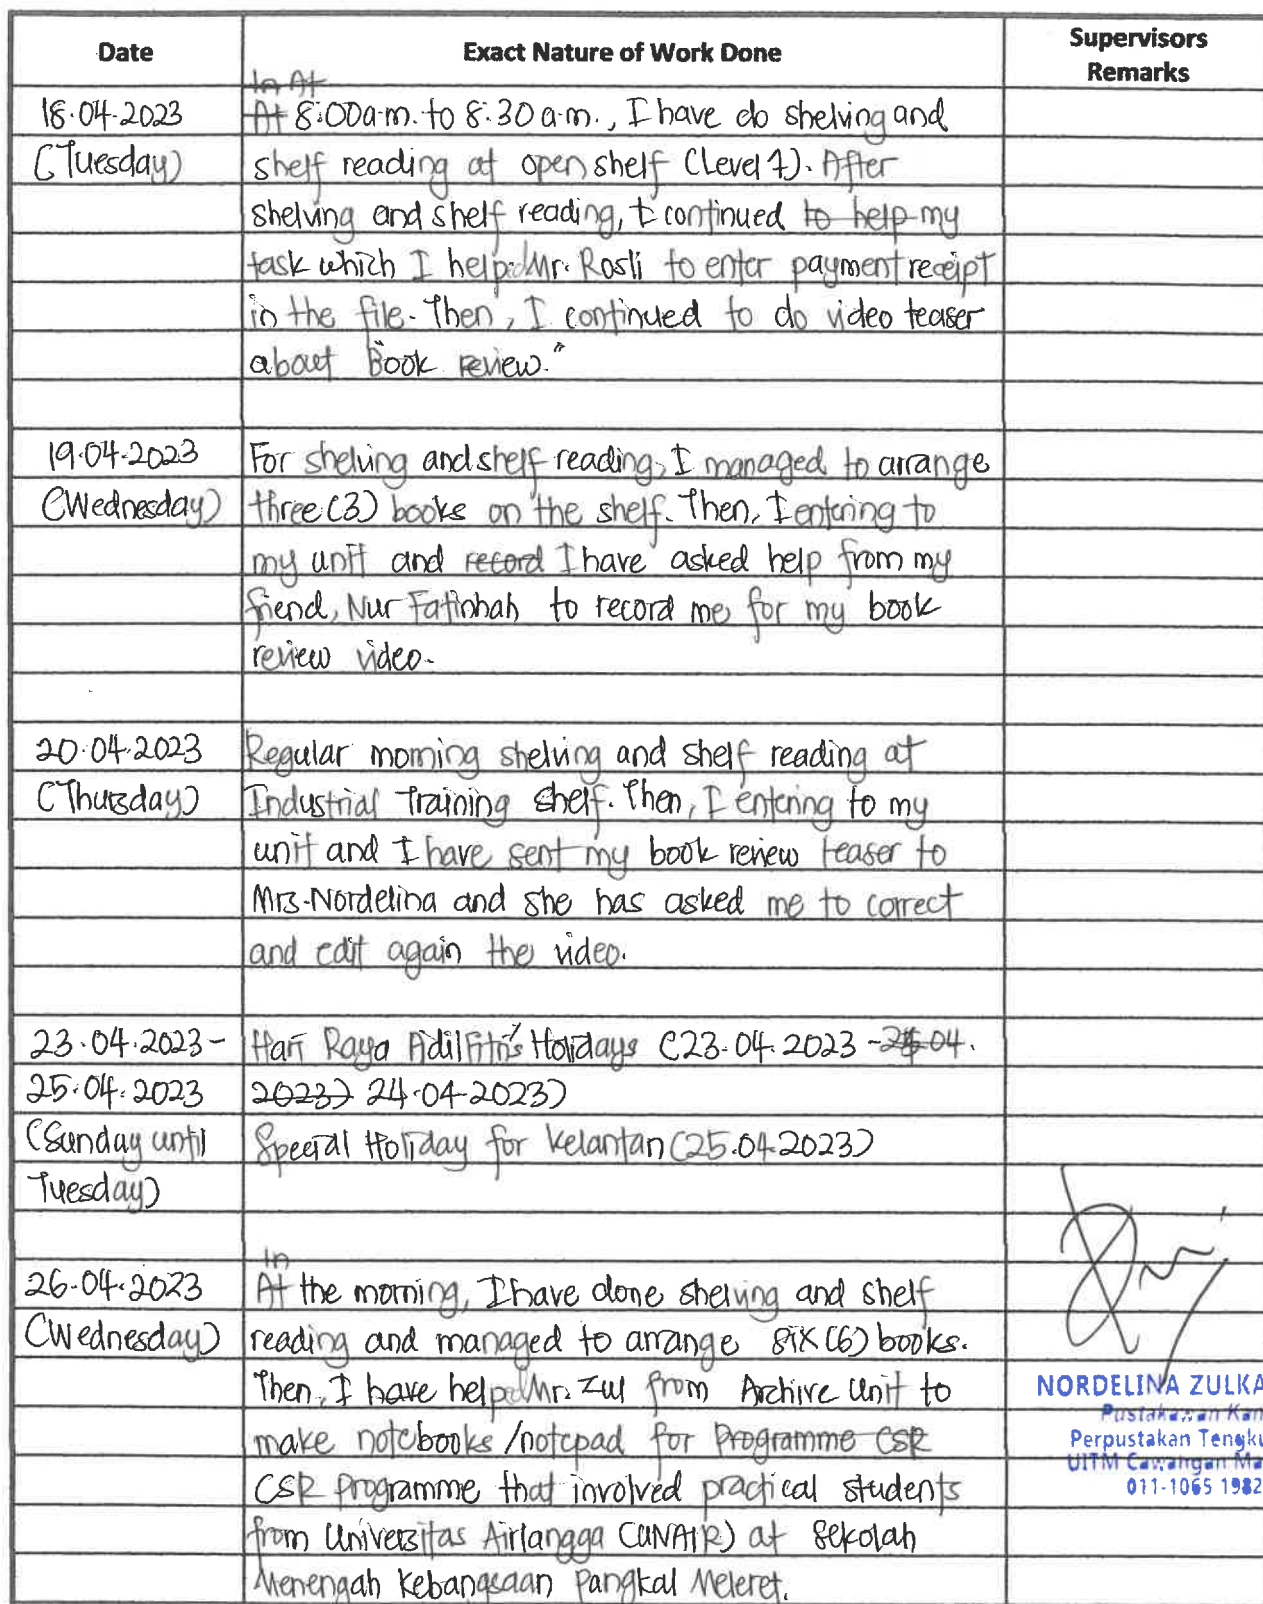 Date Exact Nature of Work Done Supervisors
Remarks
In At
18.04.2023 At 8:00a.m. to 8:30 a.m., I have do shelving and
(Tuesday) shelf reading at open shelf (Level 1). After
shelving and shelf reading, I continued to help my
task which I helped Mr. Rosli to enter payment receipt
in the file. Then, I continued to do video teaser
about "Book review."
19.04.2023 For shelving and shelf reading, I managed to arrange
(Wednesday) three (3) books on the shelf. Then, I entering to
my unit and record I have asked help from my
friend, Nur Fatinhah to record me for my book
review video.
20.04.2023 Regular morning shelving and shelf reading at
(Thursday) Industrial Training shelf. Then, I entering to my
unit and I have sent my book review teaser to
Mrs. Nordelina and she has asked me to correct
and edit again the video.
23.04.2023 - Hari Raya Adilfitri's Holidays (23.04.2023 - 04.
25.04.2023 2023) 24.04.2023)
(Sunday until Special Holiday for Kelantan (25.04.2023)
Tuesday)
In
26.04.2023 At the morning, I have done shelving and shelf
(Wednesday) reading and managed to arrange six (6) books.
Then, I have helped Mr. Zul from Archive Unit to
make notebooks/notepad for Programme CSR
CSR programme that involved practical students
from Universitas Airlangga (UNAIR) at Sekolah
Menengah Kebangsaan Pangkal Meleret.
NORDELINA ZULKA
Pustakawan Kan
Perpustakan Tengku
UITM Cawangan Ma
011-1065 1982